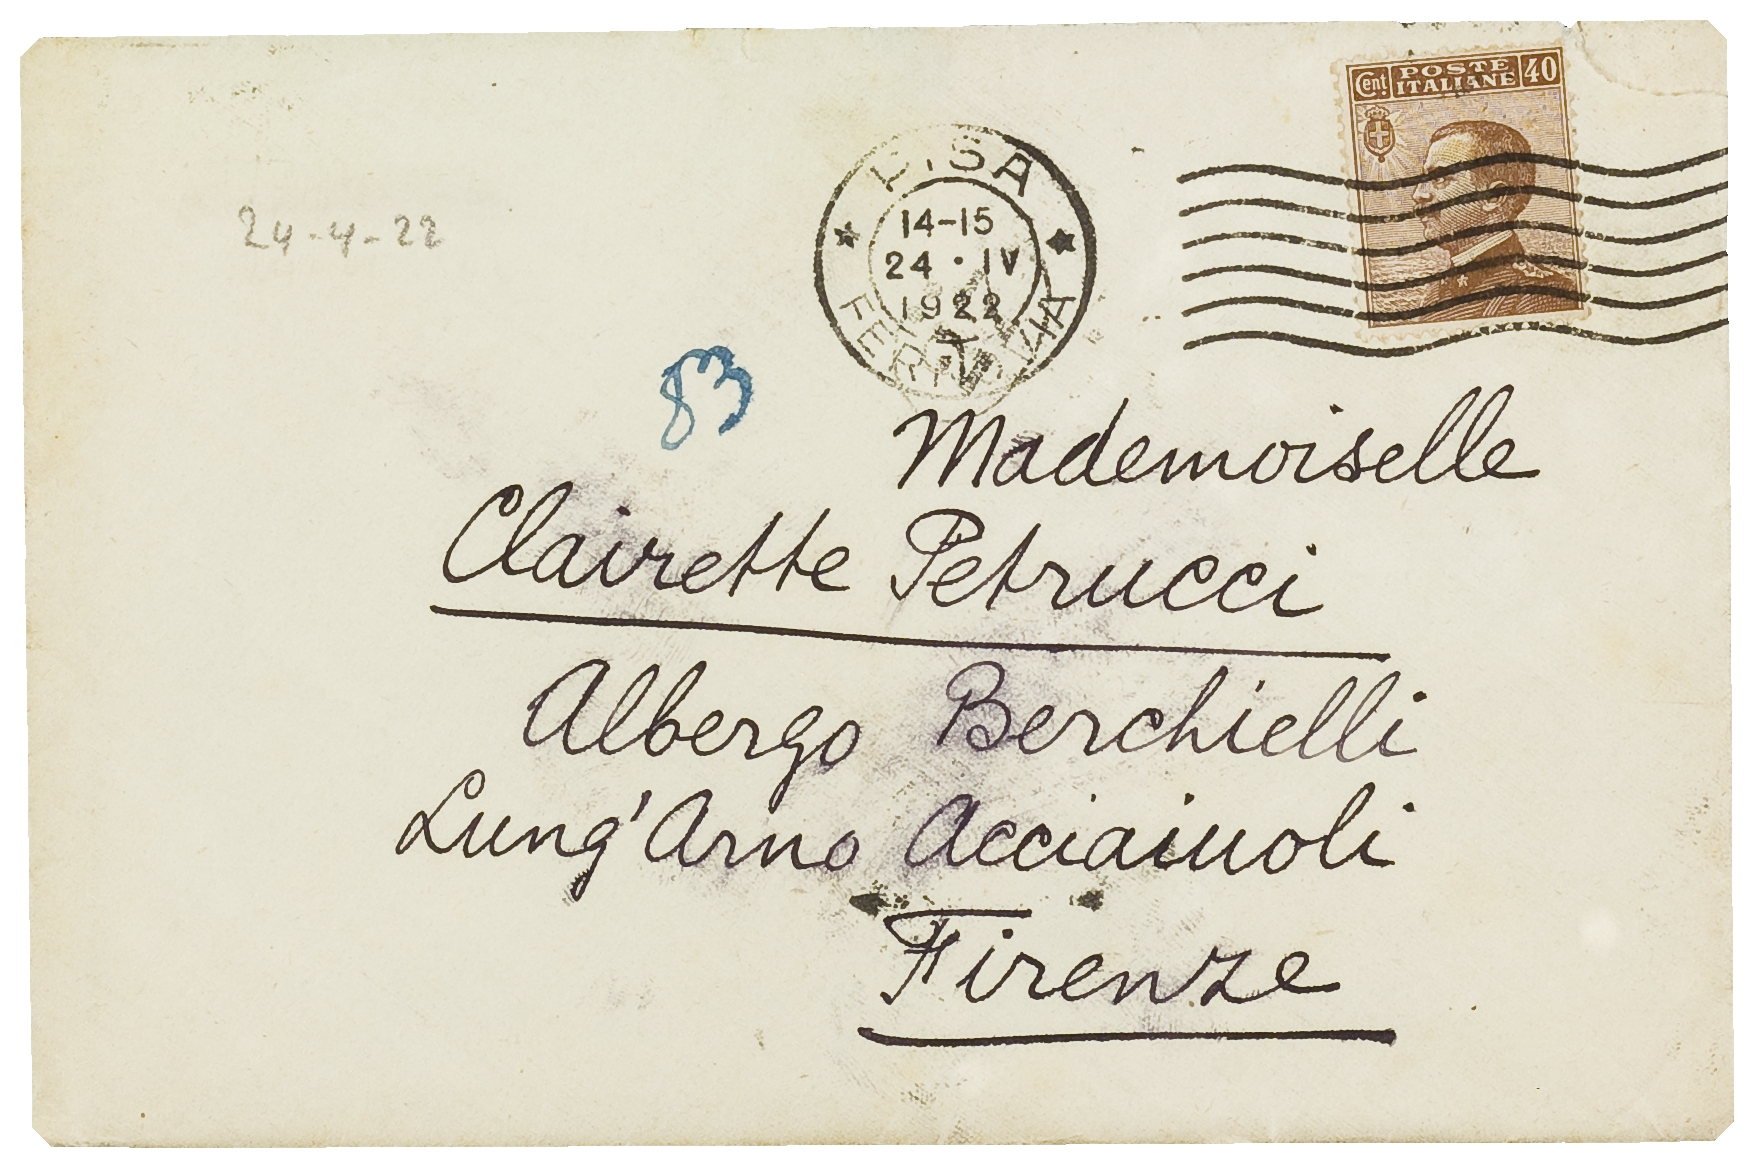 Cent POSTE ITALIANE 40
PISA
14-15
24 · IV
1922
FERROVIA
24-4-22
83
Mademoiselle
Clairette Petrucci
Albergo Berchielli
Lung'Arno Acciaiuoli
Firenze